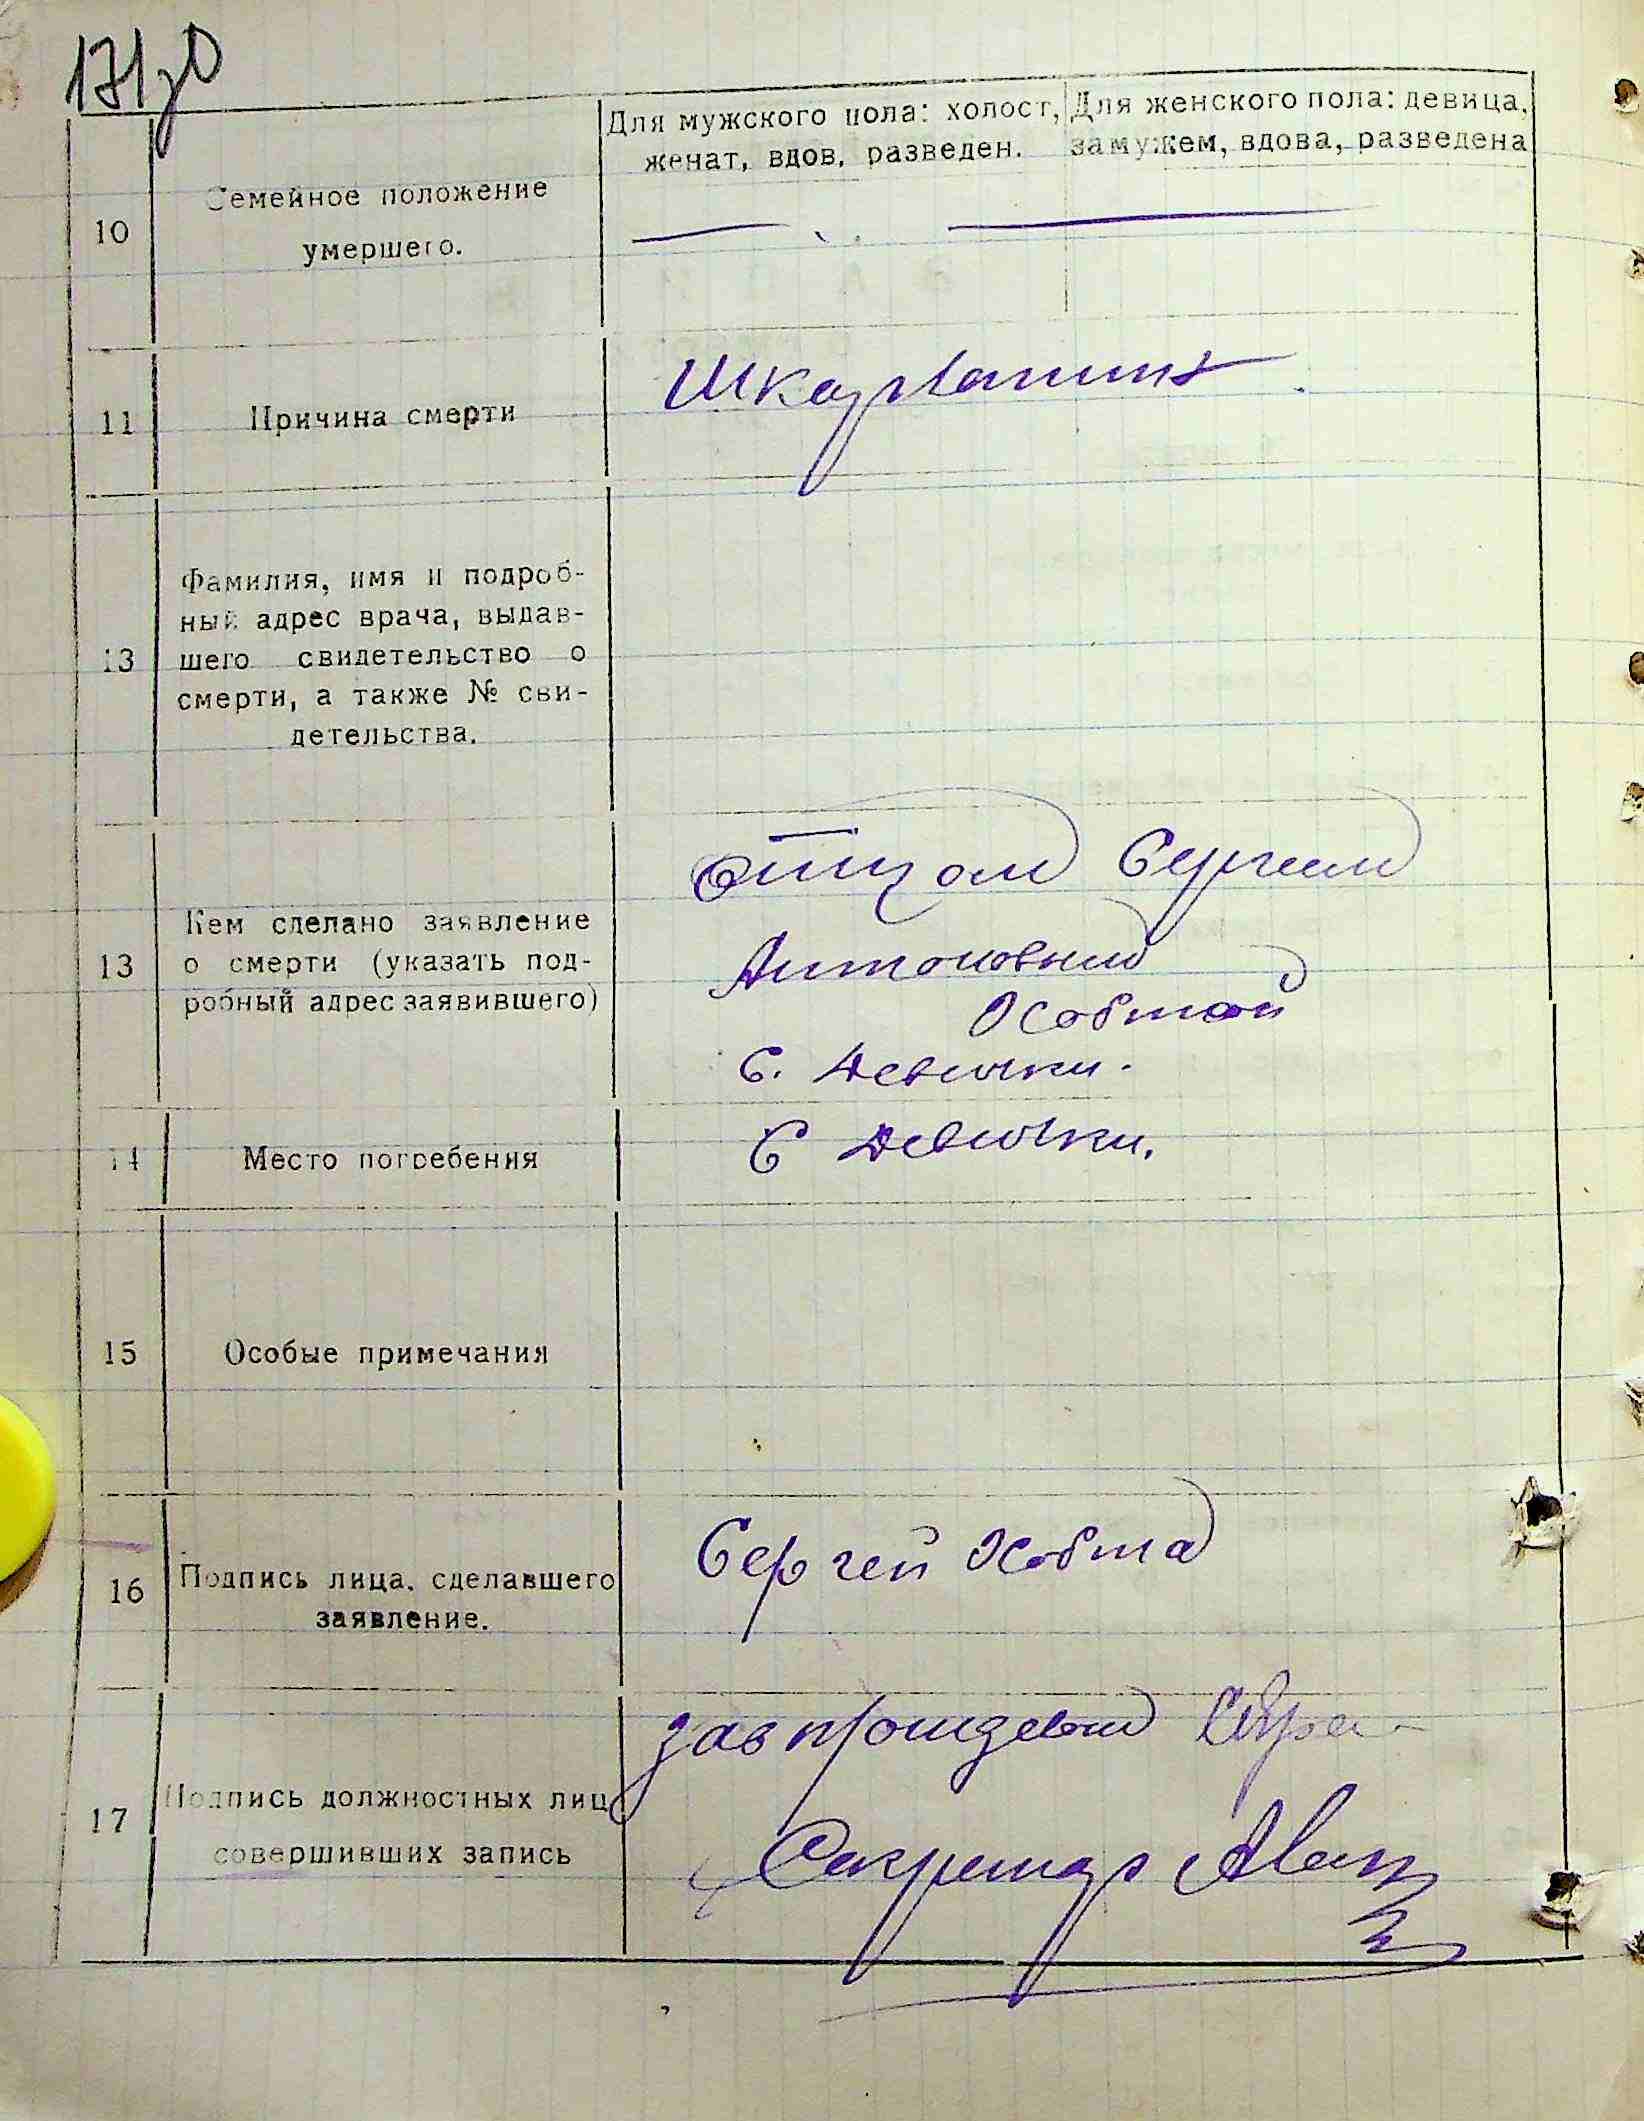 171зв
Для мужского пола: холост, женат, вдов, разведен.
Для женского пола: девица, замужем, вдова, разведена
10
Семейное положение
умершего.
11
Причина смерти
Шкарлатина
13
Фамилия, имя и подроб-
ный адрес врача, выдав-
шего свидетельство о
смерти, а также № сви-
детельства.
13
Кем сделано заявление
о смерти (указать под-
робный адрес заявившего)
Отцом Сергеем
Антоновым
Жовтой
С. Девички.
14
Место погребения
С Девички.
15
Особые примечания
16
Подпись лица, сделавшего
заявление.
Сергей Жовта
17
Подпись должностных лиц
совершивших запись
Секретарь